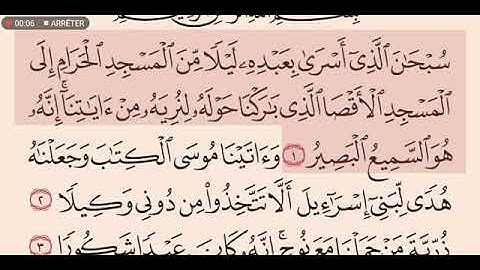 00:06 ARRÊTER
سُبْحَٰنَ ٱلَّذِىٓ أَسْرَىٰ بِعَبْدِهِۦ لَيْلًا مِّنَ ٱلْمَسْجِدِ ٱلْحَرَامِ إِلَى
ٱلْمَسْجِدِ ٱلْأَقْصَا ٱلَّذِى بَٰرَكْنَا حَوْلَهُۥ لِنُرِيَهُۥ مِنْ ءَايَٰتِنَآ ۚ إِنَّهُۥ
هُوَ ٱلسَّمِيعُ ٱلْبَصِيرُ ١ وَءَاتَيْنَا مُوسَى ٱلْكِتَٰبَ وَجَعَلْنَٰهُ
هُدًى لِّبَنِىٓ إِسْرَٰٓءِيلَ أَلَّا تَتَّخِذُوا۟ مِن دُونِى وَكِيلًا ٢
ذُرِّيَّةَ مَنْ حَمَلْنَا مَعَ نُوحٍ ۚ إِنَّهُۥ كَانَ عَبْدًا شَكُورًا ٣